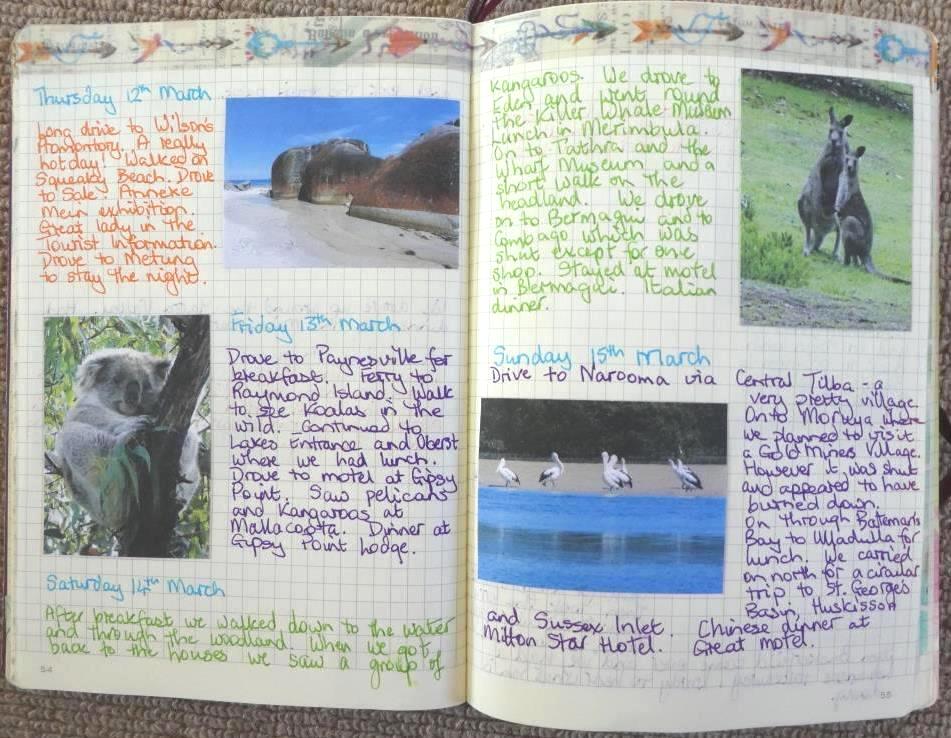 Thursday 12th March
Long drive to Wilson's
Promontory. A really
hot day! Walked on
Squeaky Beach. Drove
to Sale. Anneke
Mein exhibition.
Great lady in the
Tourist Information.
Drove to Metung
to stay the night.
Friday 13th March
Drove to Paynesville for
breakfast. Ferry to
Raymond Island. Walk
to see Koalas in the
wild. Continued to
Lakes Entrance and Oberst
where we had lunch.
Drove to motel at Gipsy
Point. Saw pelicans
and Kangaroos at
Mallacoota. Dinner at
Gipsy Point Lodge.
Saturday 14th March
After breakfast we walked down to the water
and through the woodland. When we got
back to the houses we saw a group of
54
Kangaroos. We drove to
Eden and went round
the Killer Whale Museum
Lunch in Merimbula.
On to Tathra and the
Wharf Museum and a
short walk on the
headland. We drove
on to Bermagui and to
Combago which was
shut except for one
shop. Stayed at motel
in Bermagui. Italian
dinner.
Sunday 15th March
Drive to Narooma via Central Tilba - a
very pretty village.
Onto Moruya where
we planned to visit
a Gold Mines Village.
However it was shut
and appeared to have
burned down.
On through Batemans
Bay to Ulladulla for
lunch. We carried
on north for a circular
trip to St. Georges
Basin, Huskisson
and Sussex Inlet. Chinese dinner at
Milton Star Hotel. Great motel.
55